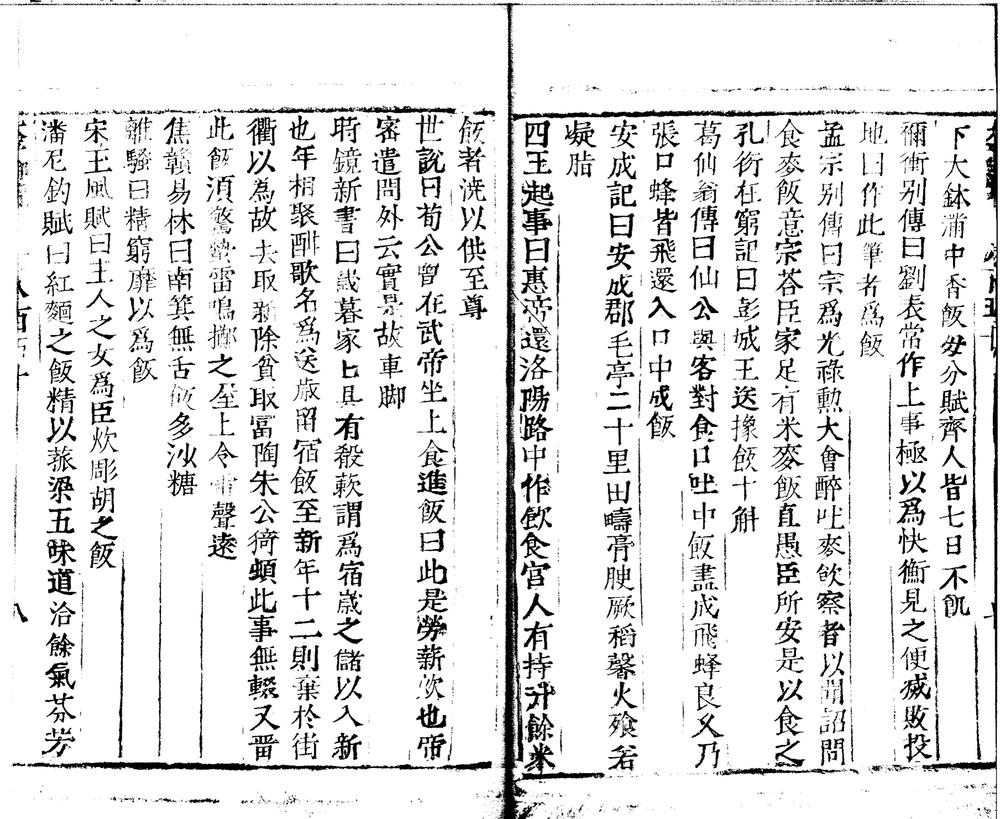 下大鉢滿中香飯㝵分賦齊人皆七日不飢
禰衡別傳曰劉表常作上事極以爲快衡見之便滅敗投
地曰作此筆者爲飯
孟宗別傳曰宗爲光祿勳大會醉吐麥飲察者以聞詔問
食麥飯意宗荅臣家足有米麥飯直愚臣所安是以食之
孔衍在窮記曰彭城王送掾飯十斛
葛仙翁傳曰仙公與客對食口吐中飯盡成飛蜂良久乃
張口蜂皆飛還入口中成飯
安成記曰安成郡毛亭二十里田疇膏腴厥稻馨火飱若
凝脂
四王起事曰惠帝還洛陽路中作飲食宫人有持汁餘米
飯者洗以供至尊
世說曰荀公曾在武帝坐上食進飯曰此是勞薪炊也帝
審遣問外云實是故車脚
時鏡新書曰歲暮家匕具有殽蔌謂爲宿歲之儲以入新
也年相聚酣歌名爲送歲留宿飯至新年十二則棄於街
衢以為故去取新除貧取富陶朱公猗頓此事無輟又晉
此飯須驚蟄雷鳴擲之屋上令雷聲逺
焦贛易林曰南箕無舌飯多沙糖
離騷曰精窮靡以爲飯
宋玉風賦曰主人之女爲臣炊彫胡之飯
潘尼釣賦曰紅麵之飯精以菰梁五味道洽餘氣芬芳
八